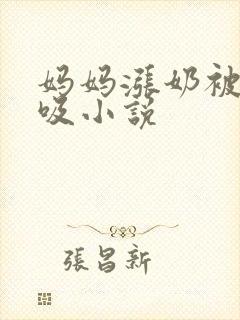 妈妈漲奶被
吸小説
張昌新